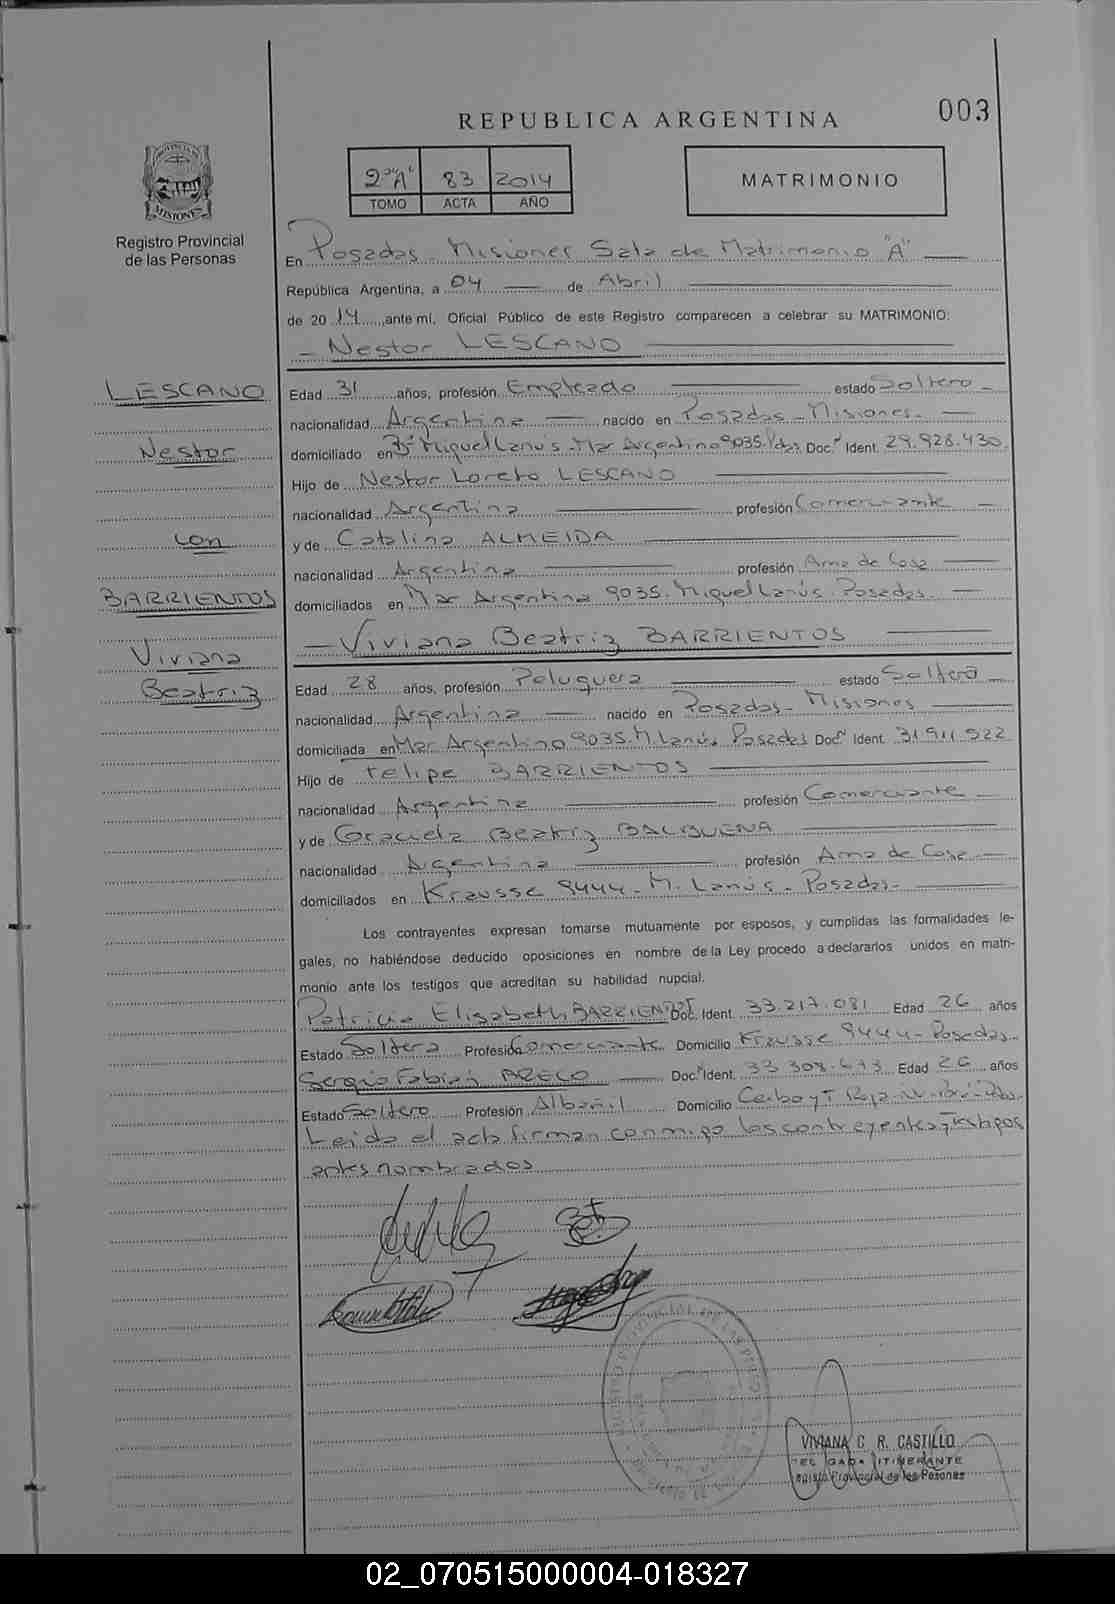 003
REPUBLICA ARGENTINA
2º "A" 83 2014
TOMO ACTA AÑO
MATRIMONIO
PROVINCIA DE
MISIONES
Registro Provincial
de las Personas
En Posadas Misiones Sala de Matrimonio "A"
República Argentina, a 04 de Abril
de 2014, ante mí, Oficial Público de este Registro comparecen a celebrar su MATRIMONIO:
- Nestor LESCANO
LESCANO
Nestor
con
BARRIENTOS
Viviana
Beatriz
Edad 31 años, profesión Empleado estado Soltero -
nacionalidad Argentina nacido en Posadas - Misiones -
domiciliado en Bº Miguel Lanús - Mar Argentino 9035. Pdas. Doc. Ident. 29.928.430
Hijo de Nestor Loreto LESCANO
nacionalidad Argentina profesión Comerciante -
y de Catalina ALMEIDA
nacionalidad Argentina profesión Ama de Casa
domiciliados en Mar Argentina 9035. Miguel Lanús. Posadas.
- Viviana Beatriz BARRIENTOS
Edad 28 años, profesión Peluquera estado Soltera
nacionalidad Argentina nacido en Posadas - Misiones
domiciliada en Mar Argentino 9035. M. Lanús. Posadas Doc. Ident. 31.911.522
Hijo de Felipe BARRIENTOS
nacionalidad Argentina profesión Comerciante -
y de Graciela Beatriz BALBUENA
nacionalidad Argentina profesión Ama de Casa -
domiciliados en Krausse 9444 - M. Lanús - Posadas -
Los contrayentes expresan tomarse mutuamente por esposos, y cumplidas las formalidades le-
gales, no habiéndose deducido oposiciones en nombre de la Ley procedo a declararlos unidos en matri-
monio ante los testigos que acreditan su habilidad nupcial.
Patricia Elisabeth BARRIENTOS Doc. Ident. 33.217.081 Edad 26 años
Estado Soltera Profesión Comerciante Domicilio Krausse 9444 - Posadas
Sergio Fabián ARECO Doc. Ident. 33 308.673 Edad 26 años
Estado Soltero Profesión Albañil Domicilio
Leida el acta firman conmigo los contrayentes y Testigos
antes nombrados
VIVIANA C. R. CASTILLO
ITINERANTE
Registro Provincial de las Personas
02_070515000004-018327